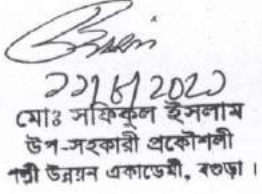 ২২/৮/2022
মোঃ সফিকুল ইসলাম
উপ-সহকারী প্রকৌশলী
পল্লী উন্নয়ন একাডেমী, বগুড়া।